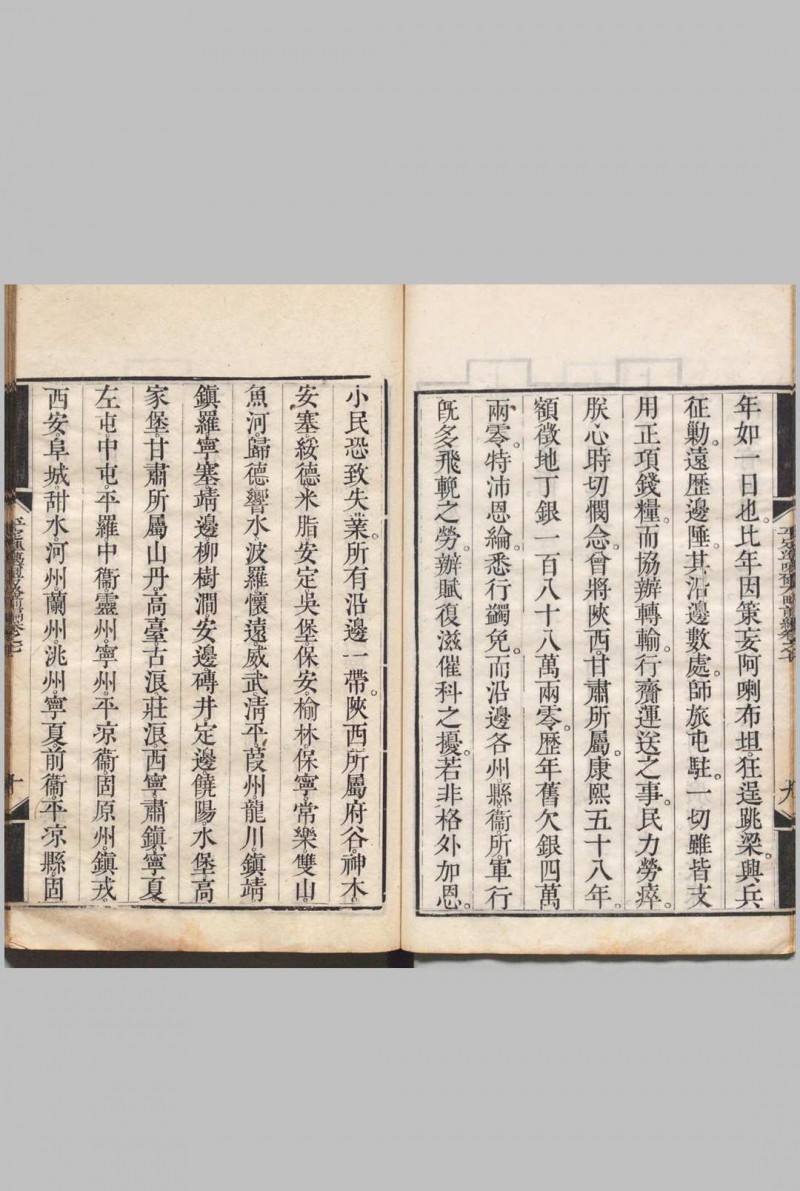 年如一日也。比年因策妄阿喇布坦。狂逞跳梁。興兵
征勦。遠歷邊陲。其沿邊數處。師旅屯駐。一切雖皆支
用正項錢糧。而協辦轉輸。行齎運送之事。民力勞瘁。
朕心時切憫念。曾將陝西。甘肅所屬。康熙五十八年。
額徵地丁銀一百八十八萬兩零。歷年舊欠銀四萬
兩零。特沛恩綸。悉行蠲免。而沿邊各州。縣。衞。所。軍行
旣多飛輓之勞。辦賦復滋催科之擾。若非格外加恩。
小民恐致失業。所有沿邊一帶。陝西所屬府谷。神木。
安塞。綏德。米脂。安定。吳堡。保安。榆林。保寧。常樂。雙山。
魚河。歸德。響水。波羅。懷遠。威武。清平。葭州。龍川。鎮靖。
鎮羅。寧塞。靖邊。柳樹澗。安邊。磚井。定邊。饒陽。水堡。高
家堡。甘肅所屬山丹。高臺。古浪。莊浪。西寧。肅鎮。寧夏
左屯。中屯。平羅。中衞。靈州。寧州。平凉衞。固原州。鎮戎。
西安。阜城。甜水。河州。蘭州。洮州。寧夏前衞。平凉縣。固